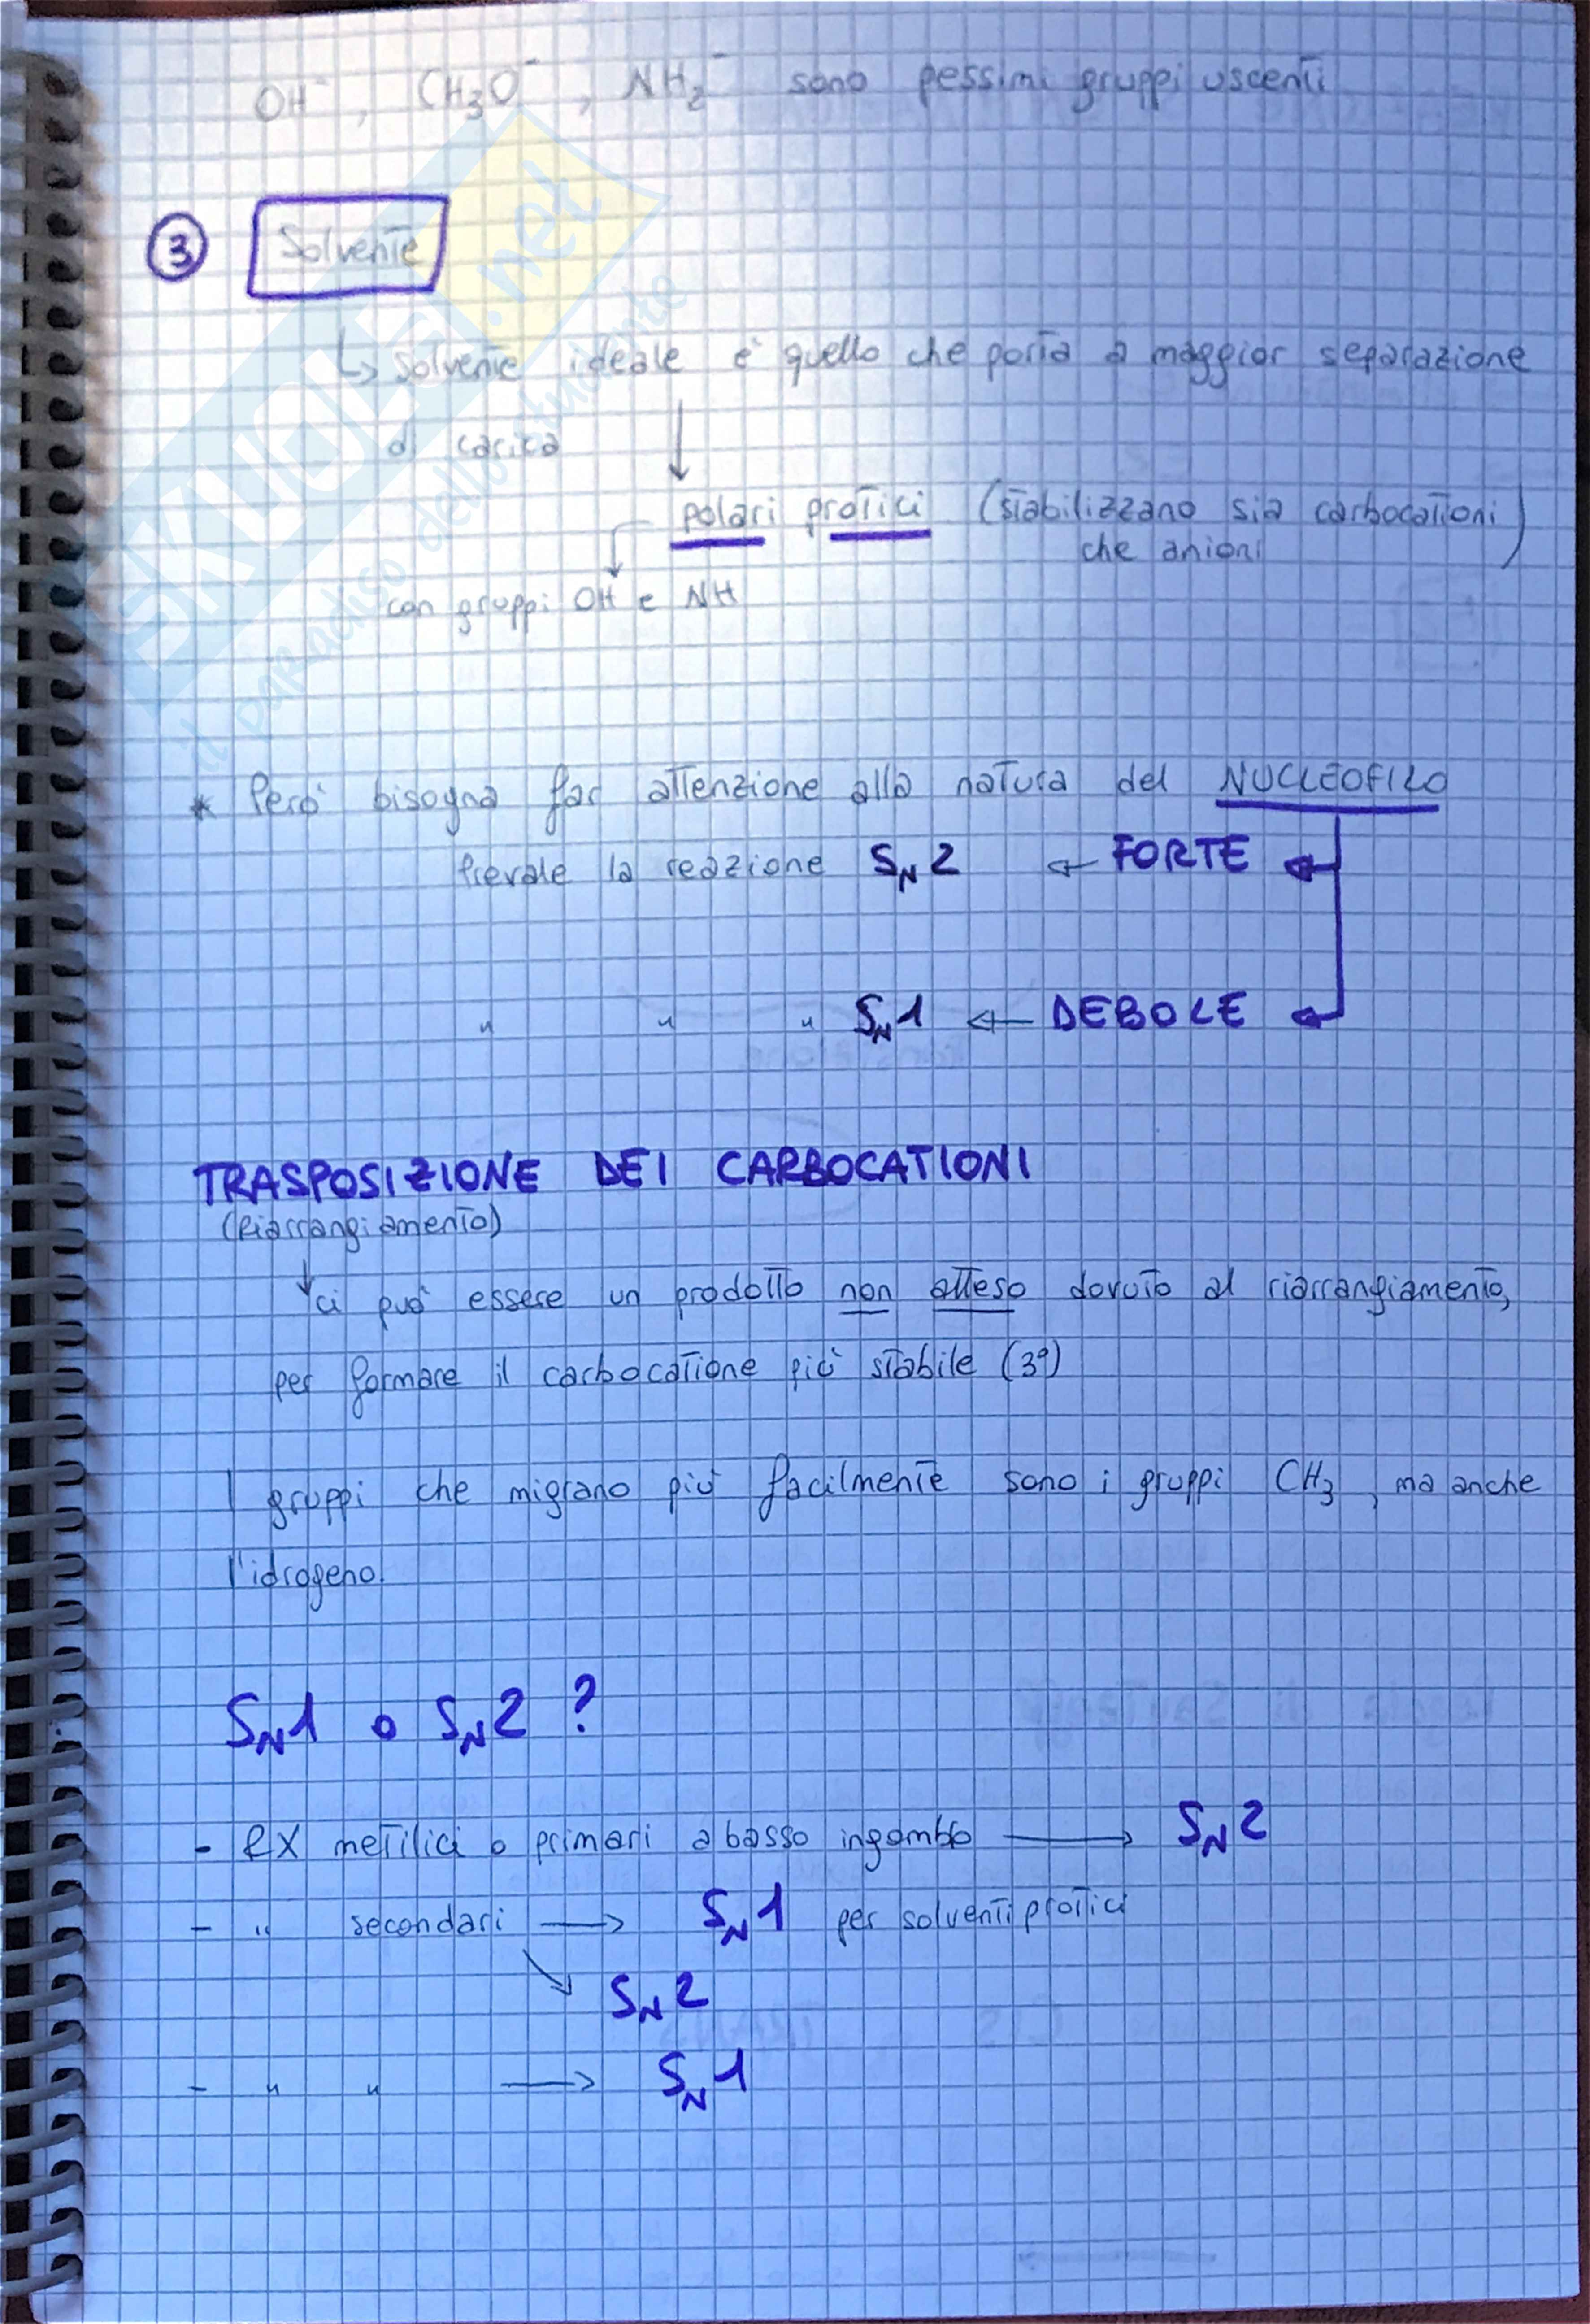 OH⁻, CH₃O⁻, NH₂⁻ sono pessimi gruppi uscenti
③ Solvente
↳ solvente ideale è quello che porta a maggior separazione
di carica
↓
polari protici (stabilizzano sia carbocationi
che anioni)
con gruppi OH e NH
* Però bisogna far attenzione alla natura del NUCLEOFILO
Prevale la reazione SN2 ← FORTE ←
" " " SN1 ← DEBOLE ←
TRASPOSIZIONE DEI CARBOCATIONI
(Riarrangiamento)
↓ ci può essere un prodotto non atteso dovuto al riarrangiamento,
per formare il carbocatione più stabile (3°)
I gruppi che migrano più facilmente sono i gruppi CH₃, ma anche
l'idrogeno.
SN1 o SN2 ?
- RX metilici o primari a basso ingombro → SN2
- " secondari → SN1 per solventi protici
↘ SN2
- " " → SN1
SKUOLA.net
il paradiso dello studente